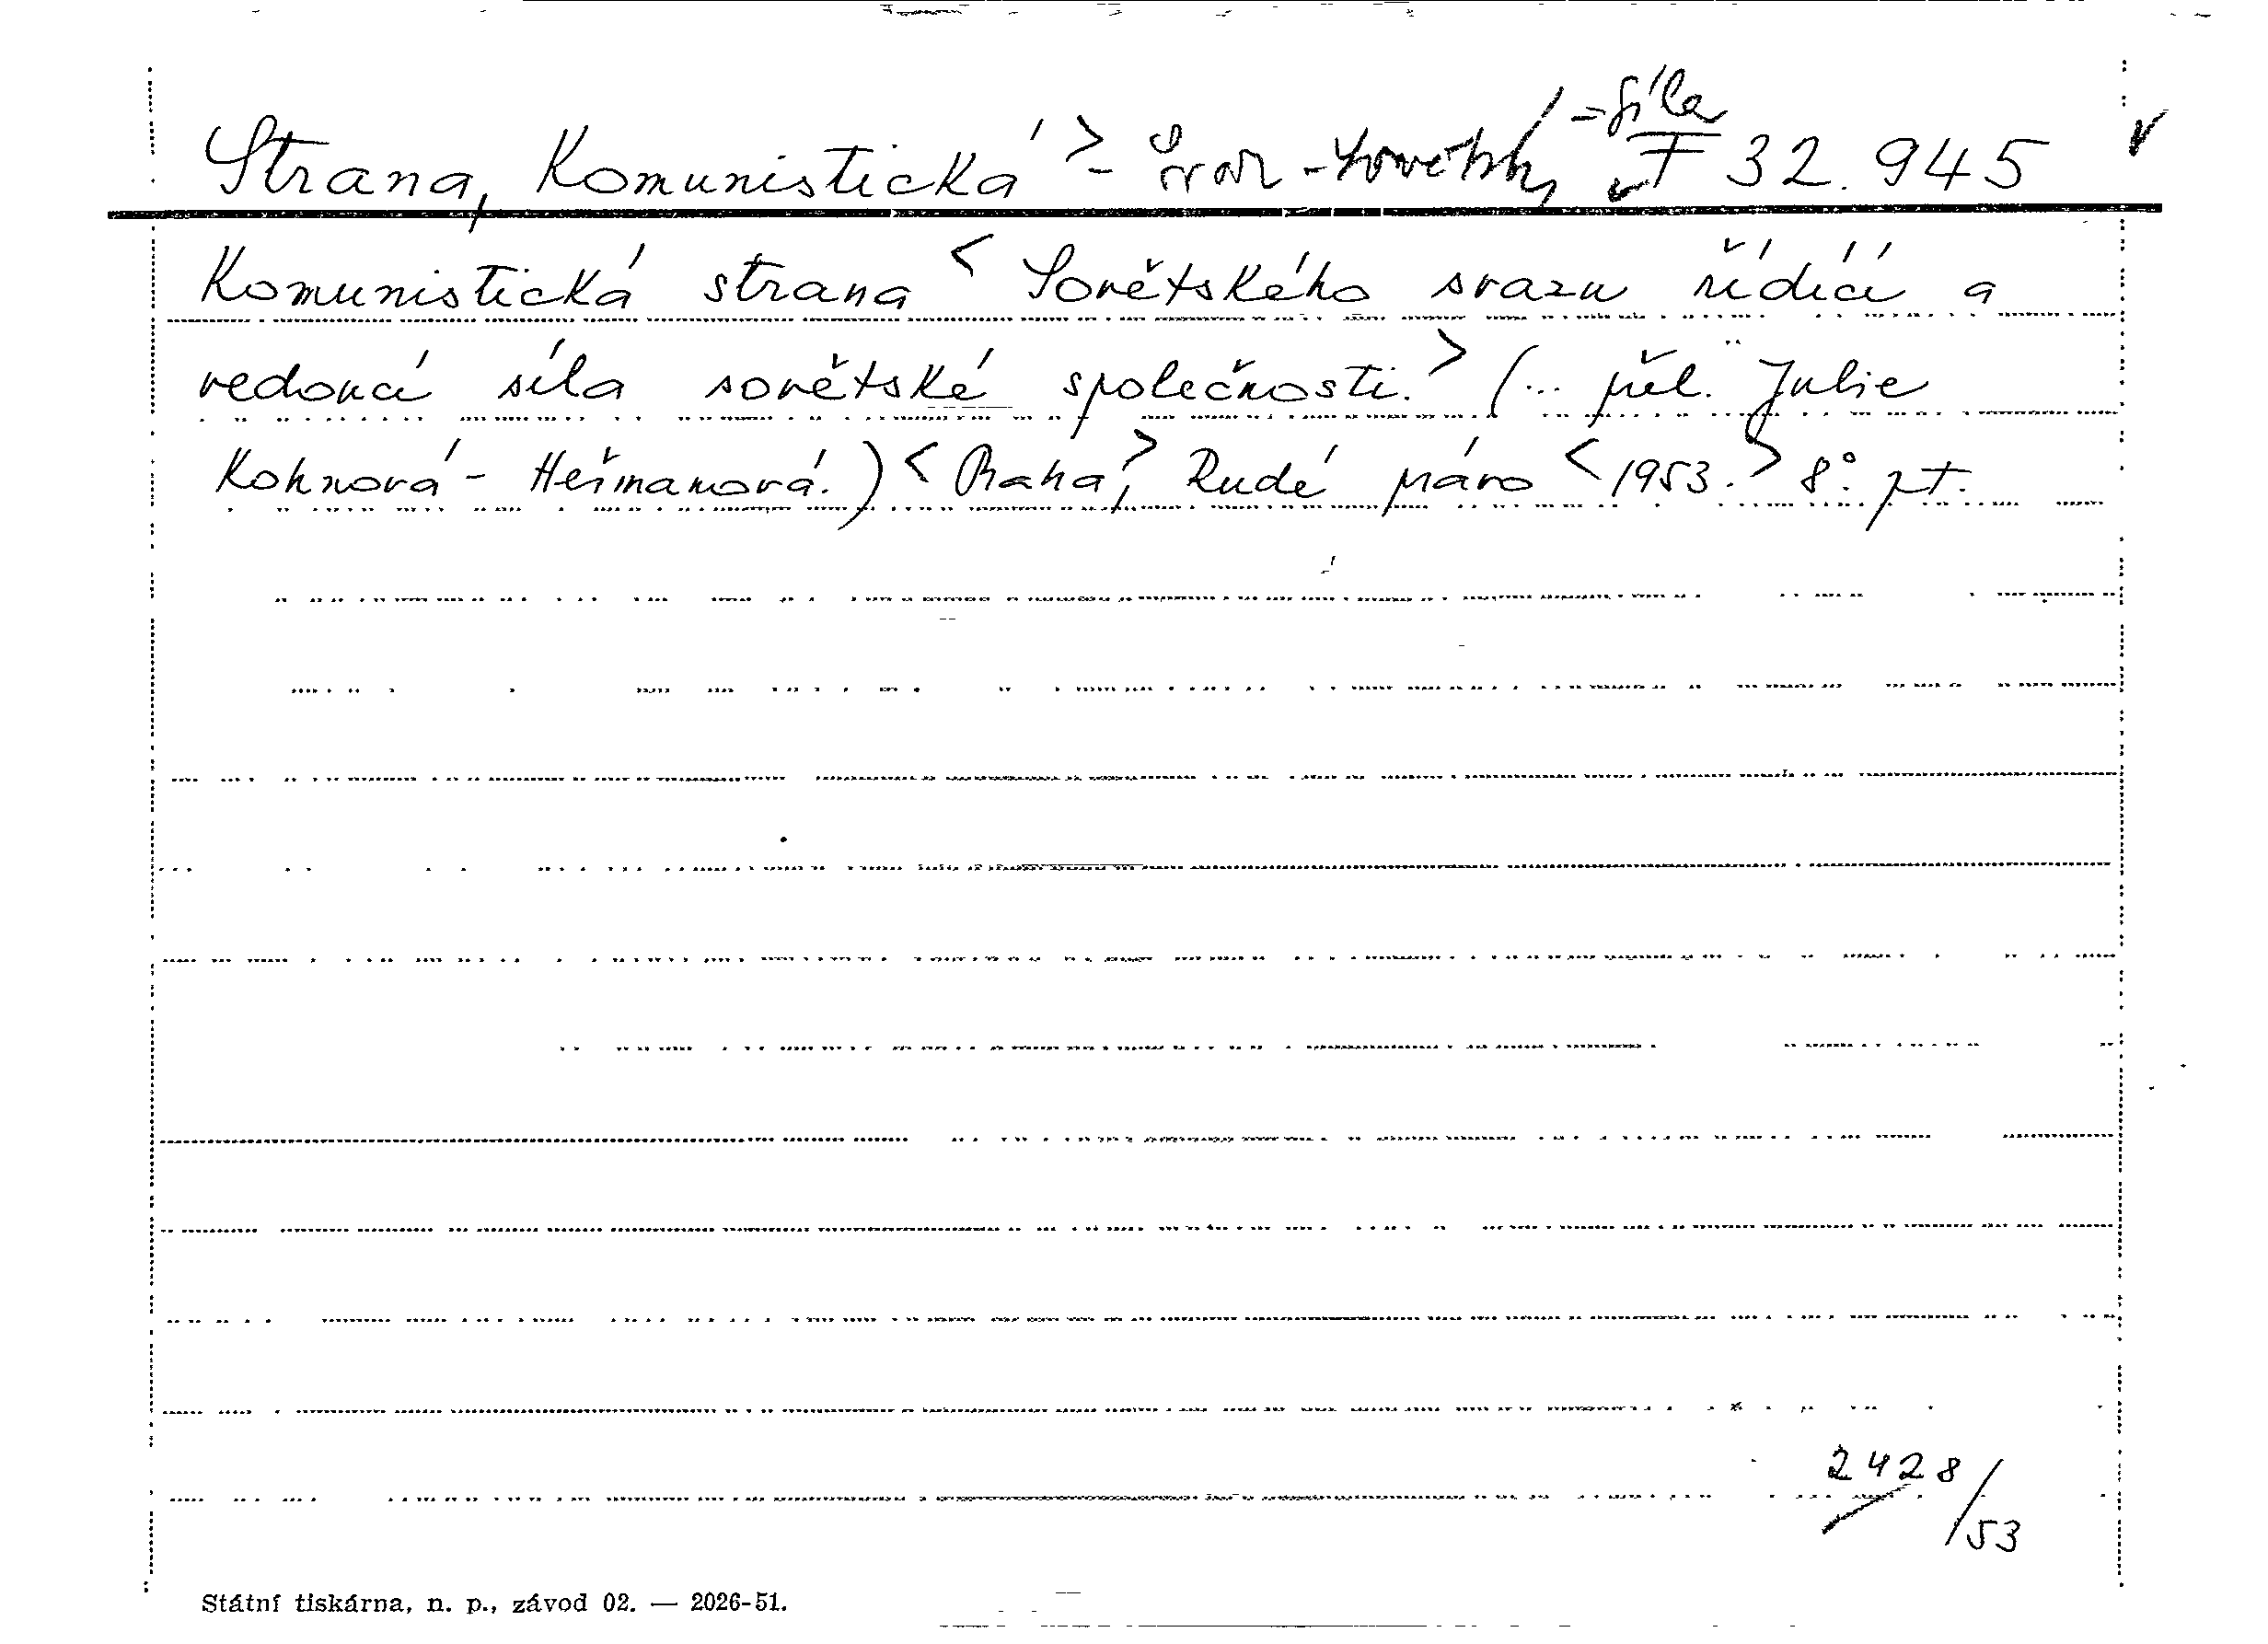 Strana, Komunistická > - Svaz - Sovětský = síla F 32.945
Komunistická strana < Sovětského svazu řídící a
vedoucí síla sovětské společnosti. > (... přel. Julie
Kohnová - Heřmanová.) < Praha, > Rudé právo < 1953. > 8° pt.
2428/53
Státní tiskárna, n. p., závod 02. — 2026-51.